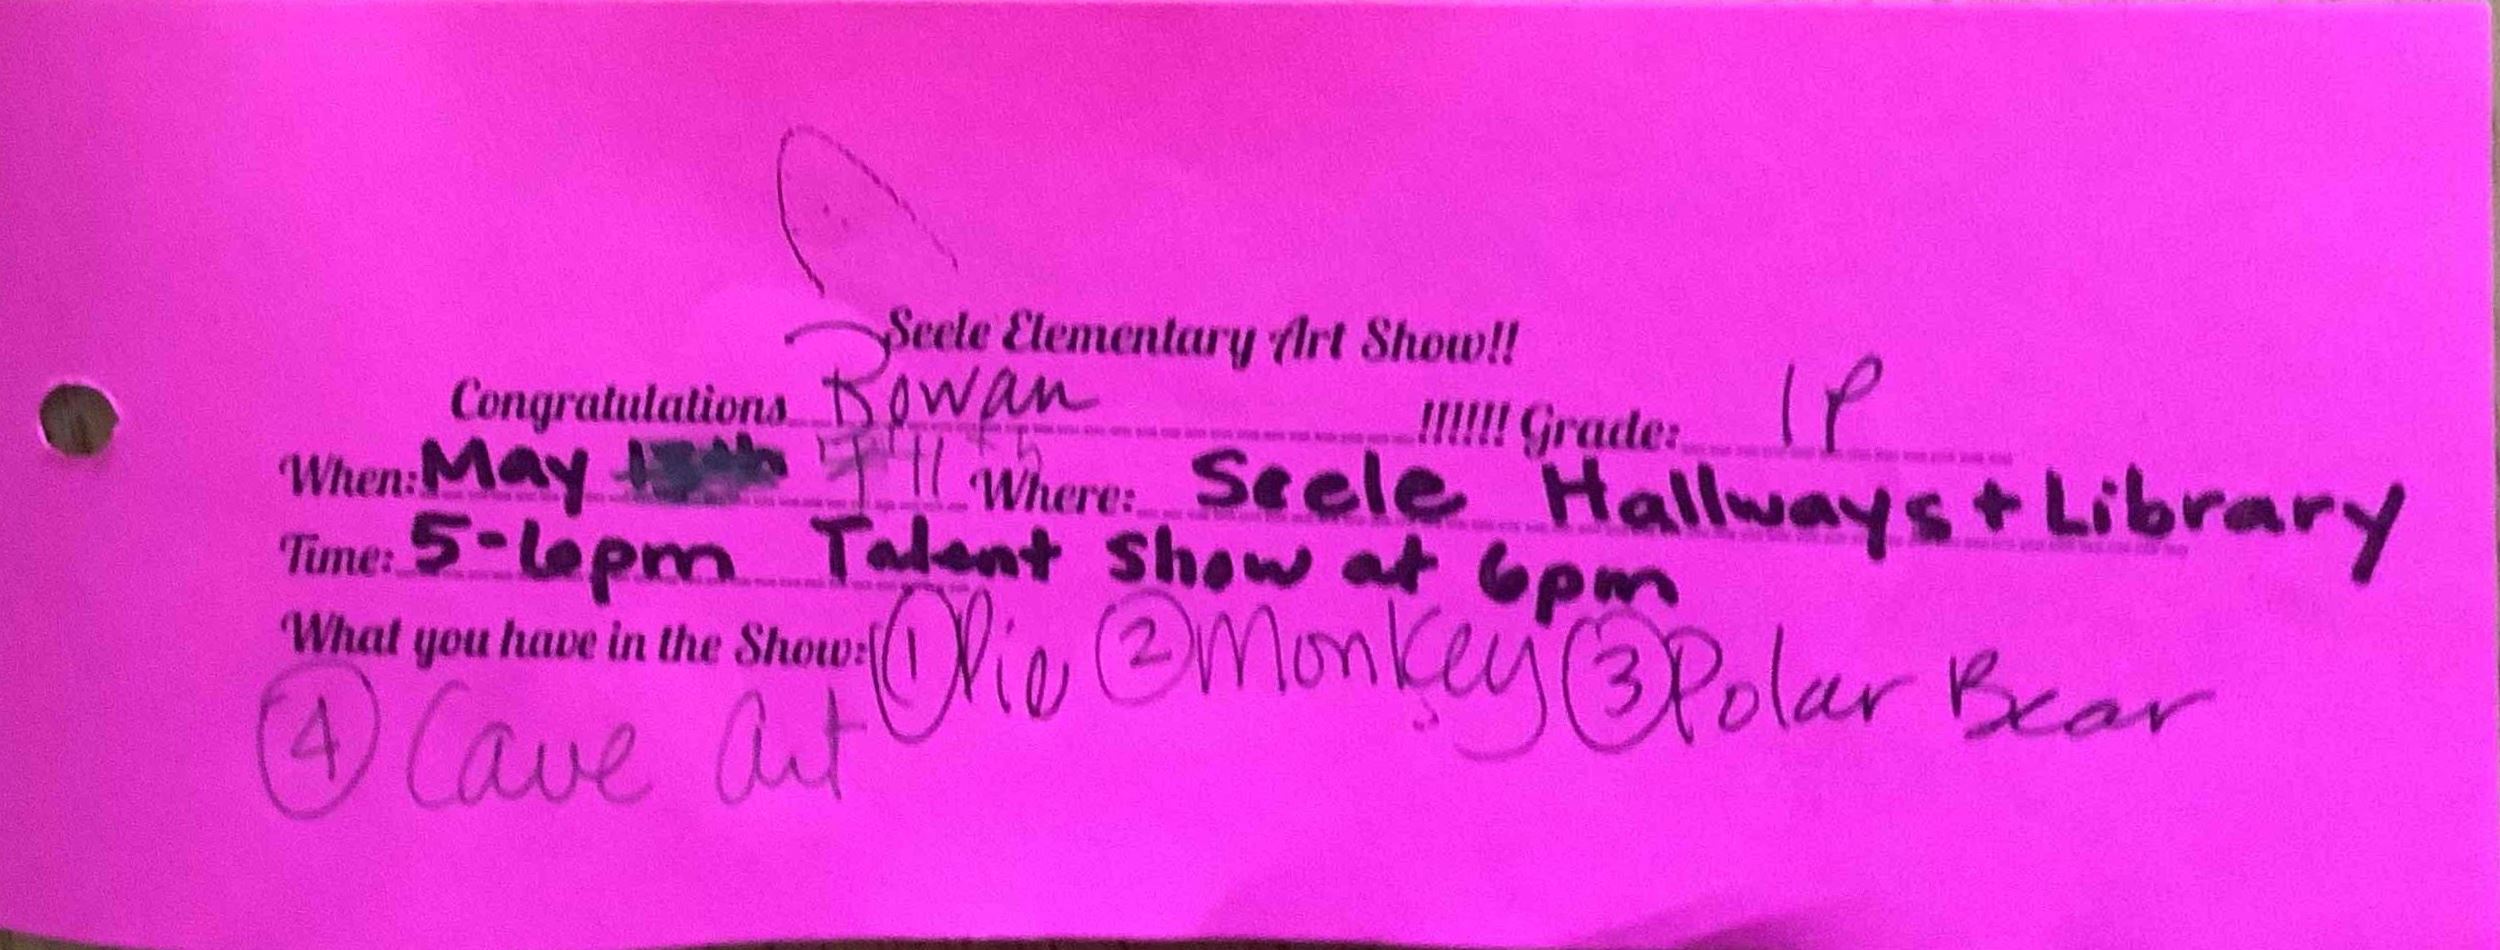 Seele Elementary Art Show!!
Congratulations Rowan !!!!!! Grade: 1P
When: May Where: Seele Hallways + Library
Time: 5-6pm Talent Show at 6pm
What you have in the Show: ① Pie ② Monkey ③ Polar Bear
④ Cave Art